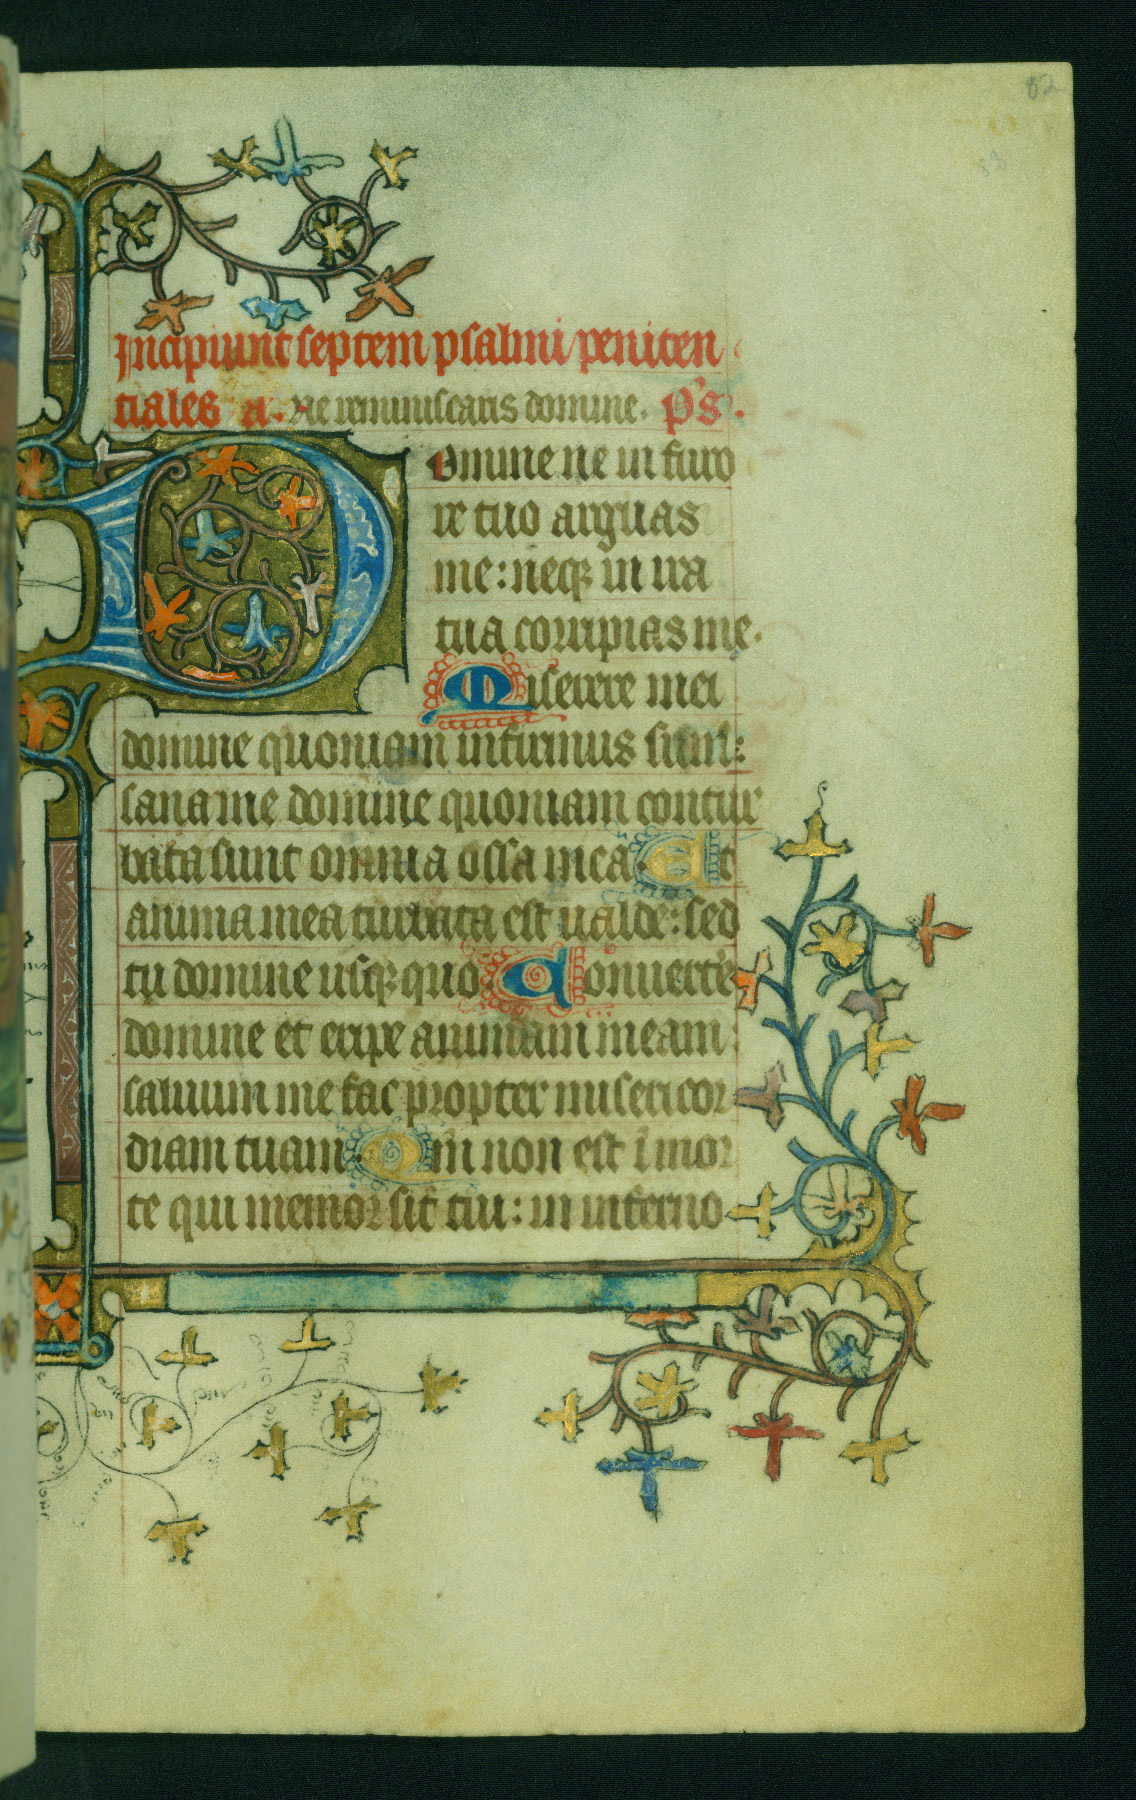 82
83
Incipiunt septem psalmi peniten
tiales a. Ne reminiscaris domine. p̄s.
Domine ne in furo
re tuo arguas
me: neqꝫ in ira
tua corripias me.
Miserere mei
domine quoniam infirmus sum:
sana me domine quoniam contur
bata sunt omnia ossa mea. Et
anima mea turbata est ualde: sed
tu domine usqꝫ quo. Conuerte
domine et eripe animam meam:
saluum me fac propter misericor
diam tuam. Qm̄ non est ī mor
te qui memor sit tui: in inferno